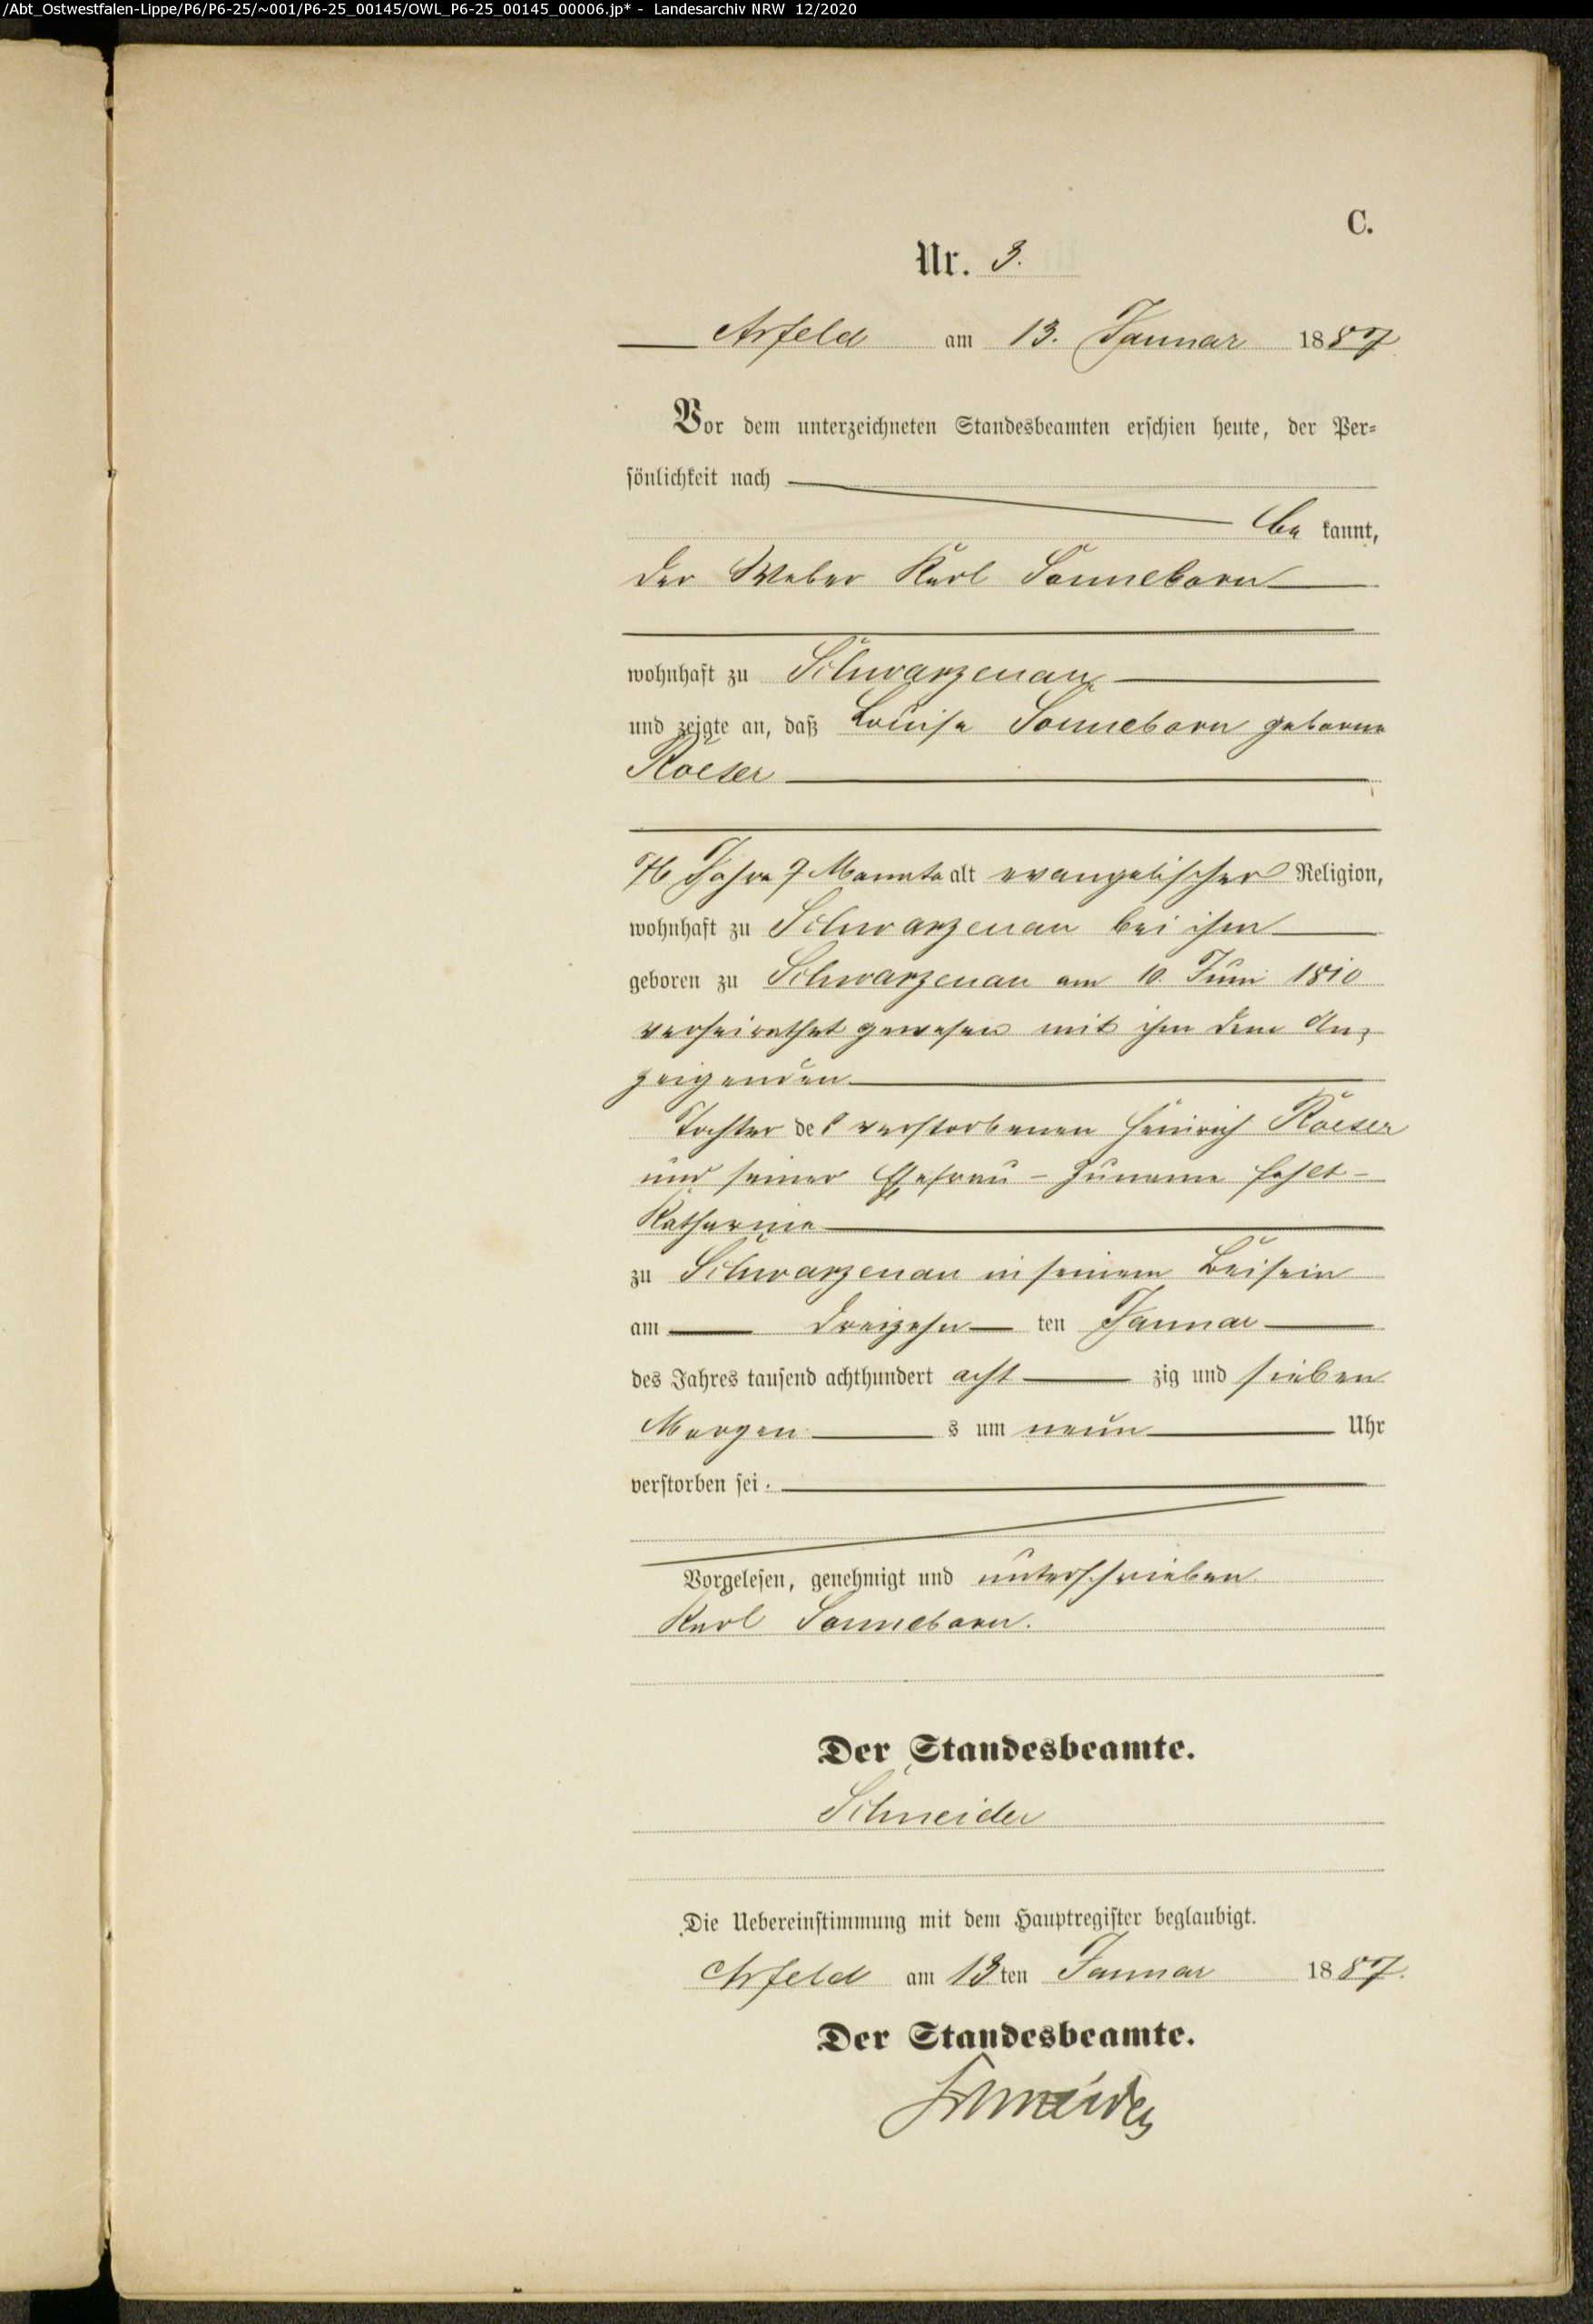 /Abt_Ostwestfalen-Lippe/P6/P6-25/~001/P6-25_00145/OWL_P6-25_00145_00006.jp* - Landesarchiv NRW 12/2020
C.
Nr. 3.
Arfeld am 13. Januar 1887
Vor dem unterzeichneten Standesbeamten erschien heute, der Per-
sönlichkeit nach
be kannt,
der Weber Karl Sonneborn
wohnhaft zu Schwarzenau
und zeigte an, daß Louise Sonneborn geborne
Roeser
76 Jahre 7 Monate alt evangelischer Religion,
wohnhaft zu Schwarzenau bei ihm
geboren zu Schwarzenau am 10. Juni 1810
verheirathet gewesen mit ihm dem An-
zeigenden
Tochter des verstorbenen Heinrich Roeser
und seiner Ehefrau - Zuname fehlt -
Katharine
zu Schwarzenau in seinem Beisein
am dreizehn ten Januar
des Jahres tausend achthundert acht zig und sieben
Morgen s um neun Uhr
verstorben sei.
Vorgelesen, genehmigt und unterschrieben
Karl Sonneborn.
Der Standesbeamte.
Schneider
Die Uebereinstimmung mit dem Hauptregister beglaubigt.
Arfeld am 13ten Januar 1887.
Der Standesbeamte.
Schneider